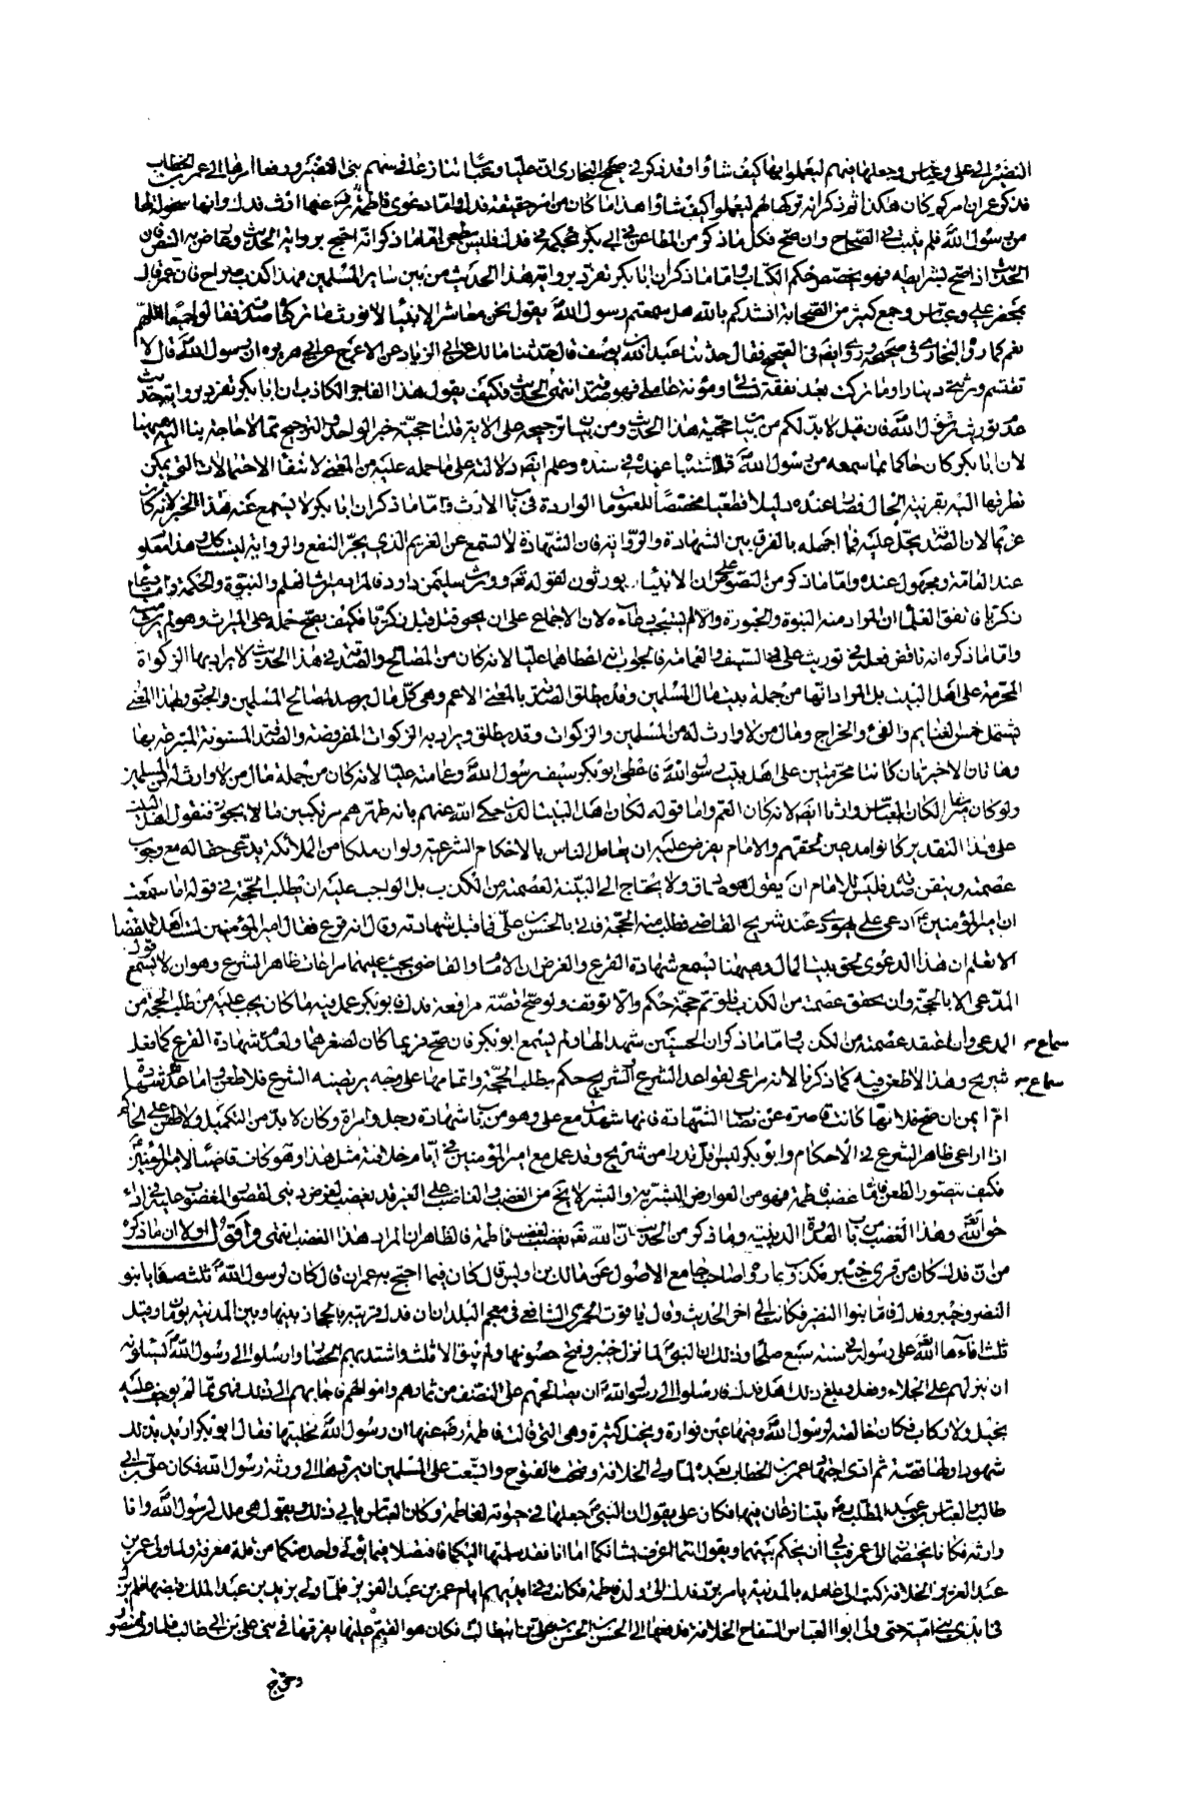 النضير الى على وعباس وجعلها فيهم ليعملوا بها كيف شاؤا وقد ذكر في صحيح البخارى ان عليا وعباسا تنازعا في سهم بنى النضير ورفعا امرها الى عمر بن الخطاب
فذكر عمران امركم كان هكذا ثم ذكر انه تركها لهم ليعملوا كيف شاؤا هذا ما كان من امر حقيقة فدك واما دعوى فاطمة رضى عنها ارث فدك وانها منحولة لها
من رسول الله فلم يثبت في الصحاح وان صح فكل ما ذكر من المطاعن في ابى بكر بحكمه في فدك فليس بطعن اما ما ذكر انه احتج برواية الحديث وعارض به النص فان
الحديث اذا صح بشرايطه فهو يخصص حكم الكتاب واما ما ذكر ان ابا بكر تفرد برواية هذا الحديث من بين ساير المسلمين فهذا كذب صراح فان عمر قال
بمحضر على وعباس وجمع كثير من الصحابة انشدكم بالله هل سمعتم رسول الله يقول نحن معاشر الانبياء لا نورث ما تركناه صدقة فقالوا جميعا اللهم
نعم كما روى البخارى في صحيحه وروى ايضا في الصحيح فقال حدثنا عبد الله بن يوسف قال حدثنا مالك عن ابى الزناد عن الاعرج عن ابى هريرة ان رسول الله قال لا
تقتسم ورثتى دينارا وما تركت بعد نفقة نسائى ومؤنة عاملى فهو صدقة انتهى الحديث فكيف يقول هذا الفاجر الكاذب ان ابا بكر تفرد برواية حديث
عدم توريث رسول الله فان قيل لا بد لكم من بيان حجية هذا الحديث ومن بيان ترجيحه على الاية قلنا حجية خبر الواحد والترجيح مما لا حاجة بنا اليه ههنا
لان ابا بكر كان حاكما بما سمعه من رسول الله فلا اشتباه عنده في سنده وعلم ايضا دلالته على ما حمله عليه من المعنى لانتفاء الاحتمالات التى يمكن
تطرقها اليه بقرينة الحال فصار عنده دليلا قطعيا مخصصا للعمومات الواردة في باب الارث واما ما ذكر ان ابا بكر لا يسمع عنه هذا الخبر لانه كان
غريما لان الصدقة تحل عليه فما اجهله بالفرق بين الشهادة والرواية فان الشهادة لا تسمع عن الغريم الذى يجر النفع والرواية ليست كذلك هذا معلوم
عند العامة ومجهول عنده واما ما ذكر من النصوص على ان الانبياء يورثون لقوله تعالى وورث سليمان داود فالمراد ميراث العلم والنبوة والحكمة واما دعاء
زكريا فاتفق العلماء ان المراد منه النبوة والحبورة والا لم يستجب دعاءه لان الاجماع على ان يحيى قتل قبل زكريا فكيف يصح حمله على الميراث وهو لم يرث منه
واما ما ذكره انه ناقض فعله في توريث على في السيف والعمامة فالجواب انه اعطاهما عليا لانه كان من المصالح والصدقة في هذا الحديث لا يراد بها الزكوة
المحرمة على اهل البيت بل المراد انها من جملة بيت مال المسلمين وقد يطلق الصدقة بالمعنى الاعم وهى كل مال يرصد لمصالح المسلمين والجنود بهذا المعنى
يشتمل خمس الغنايم والفئ والخراج ومال من لا وارث له من المسلمين والزكوات وقد يطلق ويراد به الزكوات المفروضة والصدقة المسنونة المتبرعة بها
وهاتان الاخيرتان كانتا محرمتين على اهل بيت رسول الله فاعطى ابو بكر سيف رسول الله وعمامته عليا لانه كان من جملة مال من لا وارث له من المسلمين
ولو كان ميراثا لكان العباس وارثا ايضا لانه كان العم واما قوله لكان اهل البيت الذين حكى الله عنهم بانه طهرهم مرتكبين ما لا يجوز فنقول اهل البيت
على هذا التقدير كانوا مدعين لحقهم والامام يفرض عليه ان يعامل الناس بالاحكام الشرعية ولو ان ملكا من الملائكة يدعى حقا له مع وجوب
عصمته وتيقن صدقه فليس للامام ان يقول هو صادق ولا يحتاج الى البينة لعصمته من الكذب بل الواجب عليه ان يطلب الحجة في قوله اما سمعت
ان امير المؤمنين ادعى على يهودى عند شريح القاضى فطلب منه الحجة فاتى بالحسن بن على فما قبل شهادته وقال انه فرع فقال امير المؤمنين لست اهلا للقضاء
الا تعلم ان هذا الدعوى لحق بيت المال وههنا تسمع شهادة الفرع والغرض ان الامام والقاضى يجب عليهما مراعات ظاهر الشرع وهو ان لا يسمع قول
المدعى الا بالحجة وان تحقق عصمته من الكذب فلو تم حجة حكم والا توقف ولو صح قصة مرافعة فدك فابو بكر عمل فيه ما كان يجب عليه من طلب الحجة من
المدعى وان اعتقد عصمته من الكذب واما ما ذكر ان الحسنين شهدا لها ولم يسمع ابو بكر فان صح فربما كان لصغرهما ولعدم سماع شهادة الفرع كما فعله
شريح وهذا لا طعن فيه كما ذكرنا لانه مراعى لقواعد الشرع الشريح حكم بطلب الحجة واتمامها على وجه يرتضيه الشرع فلا طعن واما عدم سماع شهادة
ام ايمن ان صح فلانها كانت قاصرة عن نصاب الشهادة فانها شهدت مع على وهو من باب شهادة رجل وامراة وكان لا بد من التكميل ولا طعن على الحاكم
اذا راعى ظاهر الشرع في الاحكام وابو بكر ليس اقل قدرا من شريح وقد عمل مع امير المؤمنين في ايام خلافته مثل هذا وهو كان قاضيا لامير المؤمنين
فكيف يتصور الطعن واما غضب فاطمة فهو من العوارض البشرية والبشر لا يخ من الغضب والغاضب على الغير قد يغضب لغرض دينى لقصور المغضوب عليه في اداء
حق الله وهذا الغضب من باب العداوة الدينية وما ذكر من الحديث ان الله تعالى يغضب لغضب فاطمة فالظاهر ان المراد هذا الغضب انتهى واقول اولا ان ما ذكره
من ان فدك كان من قرى خيبر مكذب بما رواه صاحب جامع الاصول عن مالك بن اوس قال كان فيما احتج به عمر ان قال كان لرسول الله ثلث صفايا بنو
النضير وخيبر وفدك فاما بنوا النضير فكانت الى اخر الحديث وقال ياقوت الحموى الشافعى في معجم البلدان ان فدك قرية بالحجاز بينها وبين المدينة يومان وقيل
ثلث افاءها الله على رسوله في سنة سبع صلحا وذلك ان النبى لما نزل خيبر وفتح حصونها ولم يبق الا ثلث واشتد بهم الحصار ارسلوا الى رسول الله يسئلونه
ان ينزلهم على الجلاء وفعل وبلغ ذلك اهل فدك فارسلوا الى رسول الله ان يصالحهم على النصف من ثمارهم واموالهم فاجابهم الى ذلك فهى مما لم يوجف عليه
بخيل ولا ركاب فكان خالصة لرسول الله وفيها عين فوارة ونخل كثيرة وهى التى قالت فاطمة رضى عنها ان رسول الله نحلنيها فقال ابو بكر اريد بذلك
شهودا ولها قصة ثم ادى اجتهاد عمر بن الخطاب بعده لما ولى الخلافة وفتحت الفتوح واتسعت على المسلمين ان يردها الى ورثة رسول الله فكان على بن ابى
طالب والعباس بن عبد المطلب يتنازعان فيها فكان على يقول ان النبى جعلها في حيوته لفاطمة وكان العباس يابى ذلك ويقول هى ملك لرسول الله وانا
وارثه فكانا يختصمان الى عمر فيابى ان يحكم بينهما ويقول انتما اعرف بشانكما اما انا فقد سلمتها اليكما فاقتصدا فيما يؤتى واحد منكما من قلة معرفة ولما ولى عمر بن
عبد العزيز الخلافة كتب الى عامله بالمدينة يامره برد فدك الى ولد فاطمة فكانت في ايديهم ايام عمر بن عبد العزيز فلما ولى يزيد بن عبد الملك قبضها فلم تزل
في ايدى بنى امية حتى ولى ابو العباس السفاح الخلافة فدفعها الى الحسن بن الحسن بن على بن ابيطالب فكان هو القيم عليها يفرقها في بنى على بن ابى طالب فلما ولى المنصور
وخرج